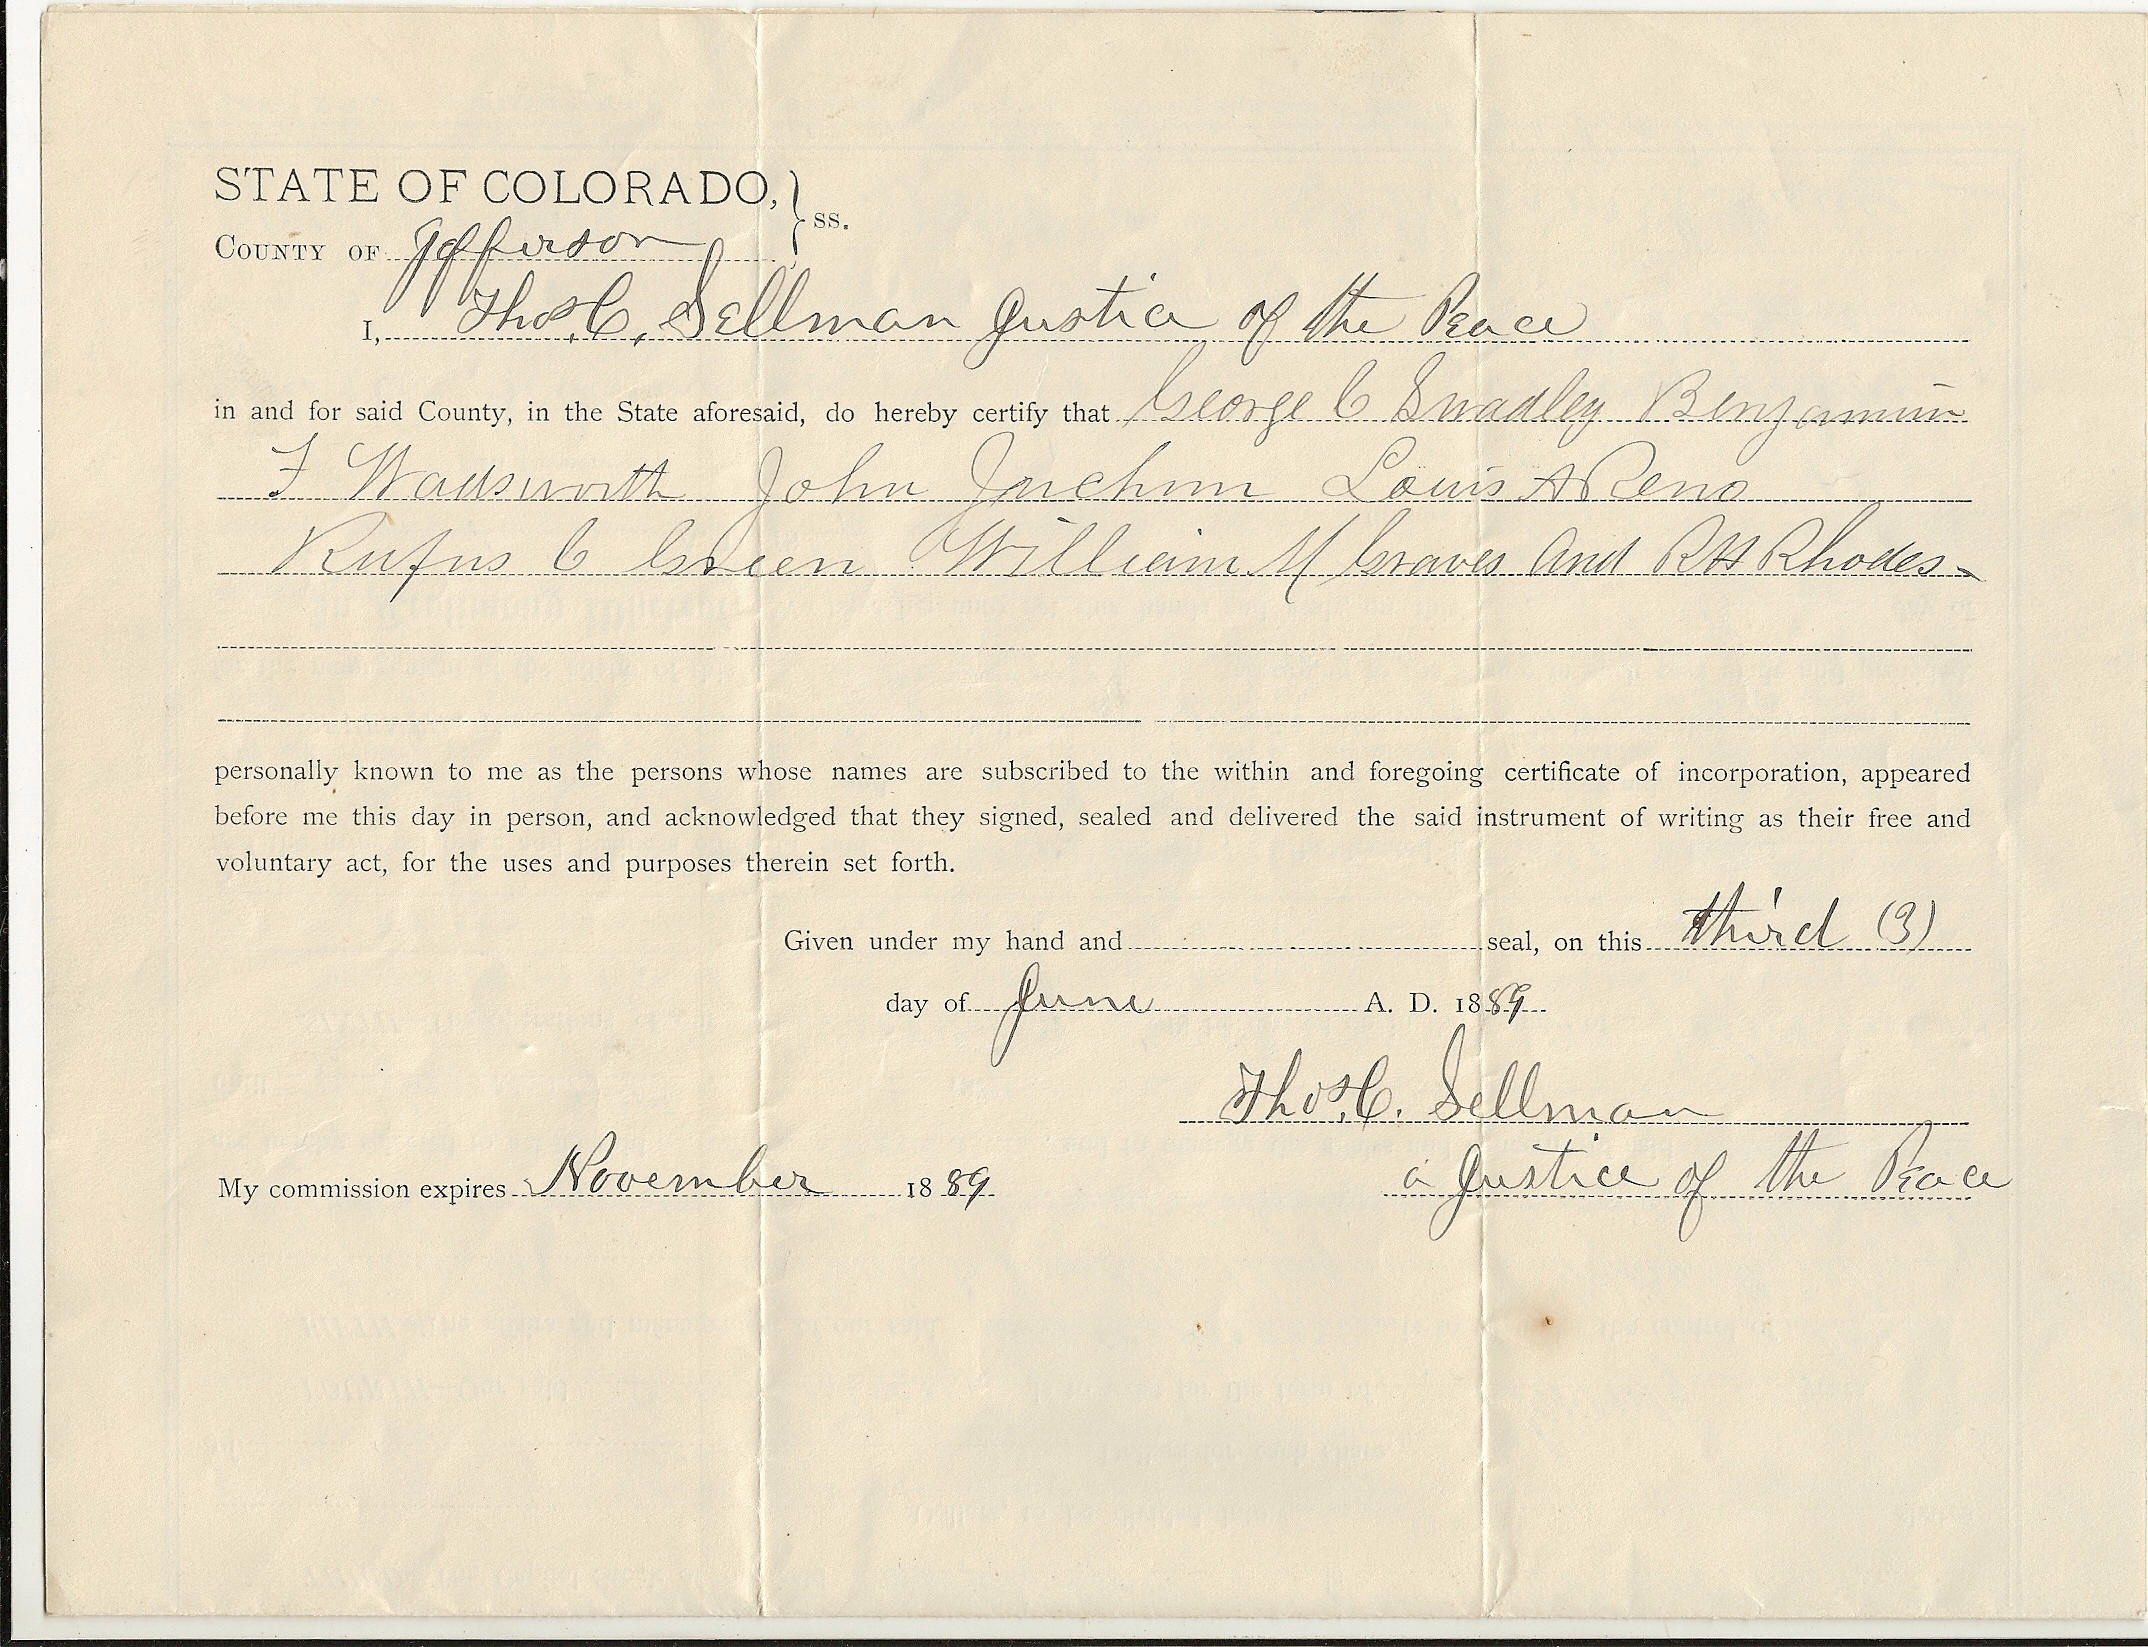 STATE OF COLORADO, } ss.
COUNTY OF Jefferson
I, Thos. C. Sellman Justice of the Peace
in and for said County, in the State aforesaid, do hereby certify that George C Swadley Benjamin
F Wadsworth John Juchim Louis A Reno
Rufus C Green William M Graves and R H Rhodes
personally known to me as the persons whose names are subscribed to the within and foregoing certificate of incorporation, appeared
before me this day in person, and acknowledged that they signed, sealed and delivered the said instrument of writing as their free and
voluntary act, for the uses and purposes therein set forth.
Given under my hand and seal, on this third (3)
day of June A. D. 1889
Thos. C. Sellman
My commission expires November 1889 a Justice of the Peace